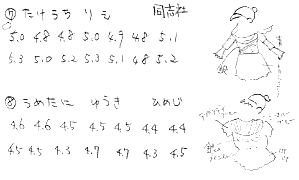 ⑦ たけうち りえ 同志社
5.0 4.8 4.8 5.0 4.9 4.8 5.1
5.3 5.0 5.2 5.3 5.1 4.8 5.2
⑧ うめたに ゆうき ひめじ
4.6 4.6 4.5 4.5 4.5 4.4 4.4
4.5 4.5 4.3 4.7 4.7 4.3 4.5